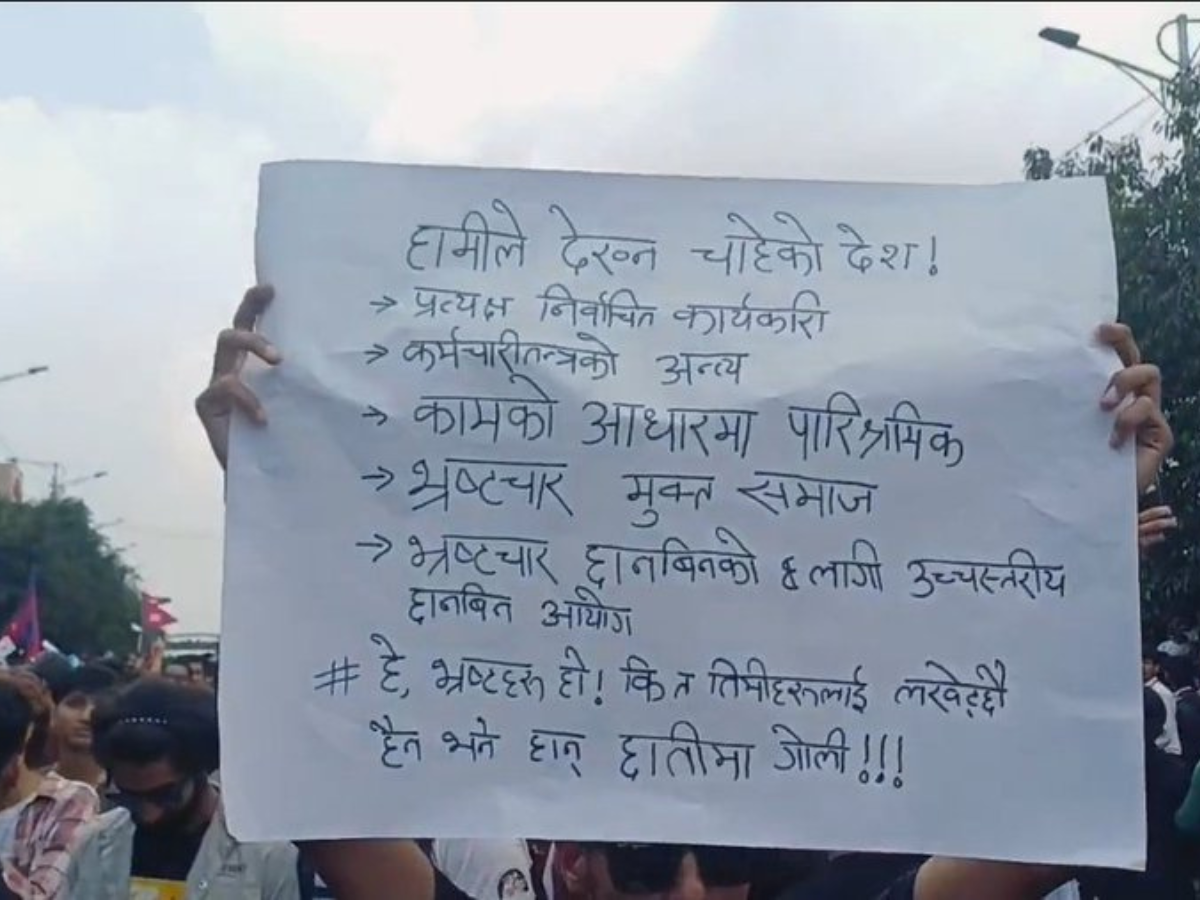 हामीले देख्न चाहेको देश!
→ प्रत्यक्ष निर्वाचित कार्यकारि
→ कर्मचारीतन्त्रको अन्त्य
→ कामको आधारमा पारिश्रमिक
→ भ्रष्टचार मुक्त समाज
→ भ्रष्टचार छानबिनको लागी उच्चस्तरीय
छानबित आयोग
# हे, भ्रष्टहरू हो! कि त तिमीहरूलाई लखेट्छौ
हैन भने हान् छातीमा गोली!!!